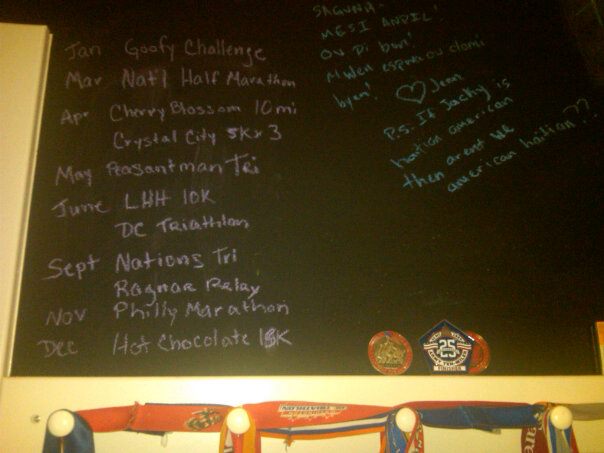 Jan Goofy Challenge
Mar Nat'l Half Marathon
Apr Cherry Blossom 10mi
Crystal City 5K x 3
May Peasantman Tri
June LHH 10K
DC Triathlon
Sept Nations Tri
Ragnar Relay
Nov Philly Marathon
Dec Hot Chocolate 15K
SAGUNA:
MESI ANPIL!
OU Di bon!
Mwen espera ou domi
byen! ♡ Jean
P.S. If Jacky is
haitian american
then arent we
american haitian??
25
FINISHER